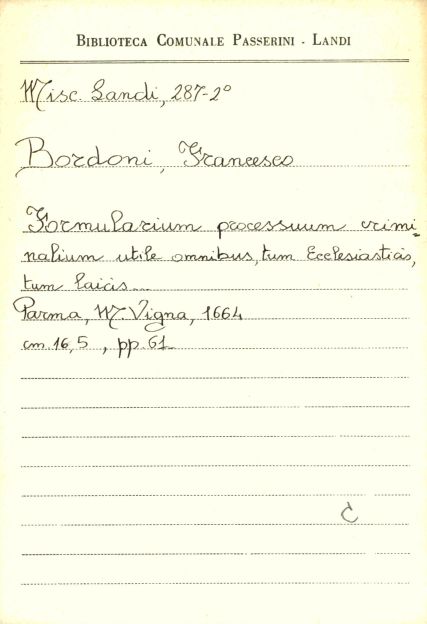 BIBLIOTECA COMUNALE PASSERINI - LANDI
Misc. Landi, 287-2º
Bordoni, Francesco
Formularium processuum crimi-
nalium utile omnibus, tum Ecclesiasticis,
tum laicis...
Parma, M. Vigna, 1664
cm. 16,5 , pp. 61
C